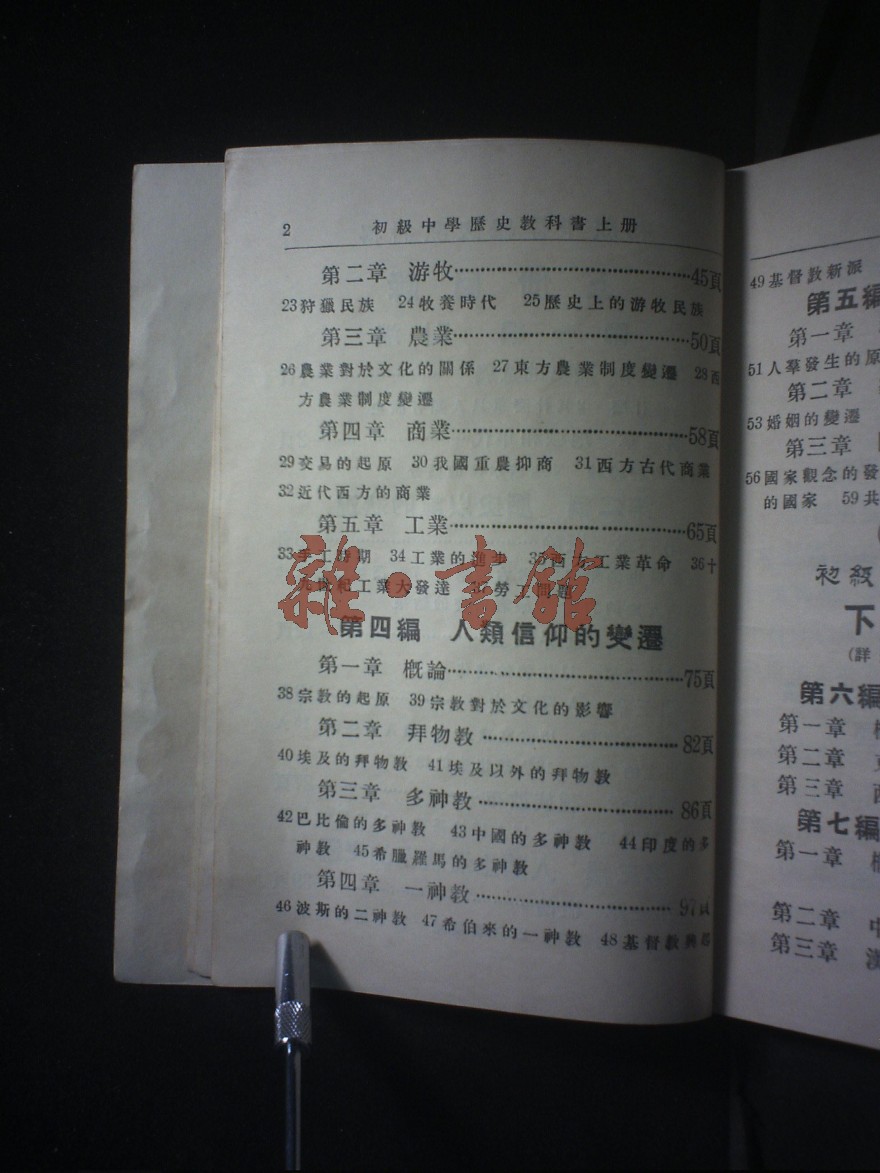 2 初級中學歷史教科書上册
第二章 游牧……45頁
23狩獵民族 24牧養時代 25歷史上的游牧民族
第三章 農業……50頁
26農業對於文化的關係 27東方農業制度變遷 28西
方農業制度變遷
第四章 商業……58頁
29交易的起原 30我國重農抑商 31西方古代商業
32近代西方的商業
第五章 工業……65頁
33手工時期 34工業的進步 35西方工業革命 36十
九世紀工業大發達 37勞工問題
雜·書館
第四編 人類信仰的變遷
第一章 概論……75頁
38宗教的起原 39宗教對於文化的影響
第二章 拜物教……82頁
40埃及的拜物教 41埃及以外的拜物教
第三章 多神教……86頁
42巴比倫的多神教 43中國的多神教 44印度的多
神教 45希臘羅馬的多神教
第四章 一神教……97頁
46波斯的二神教 47希伯來的一神教 48基督教興起
49基督教新派
第五編
第一章
51人羣發生的原
第二章
53婚姻的變遷
第三章
56國家觀念的發
的國家 59共
初級
下
(詳
第六編
第一章
第二章
第三章
第七編
第一章
第二章
第三章